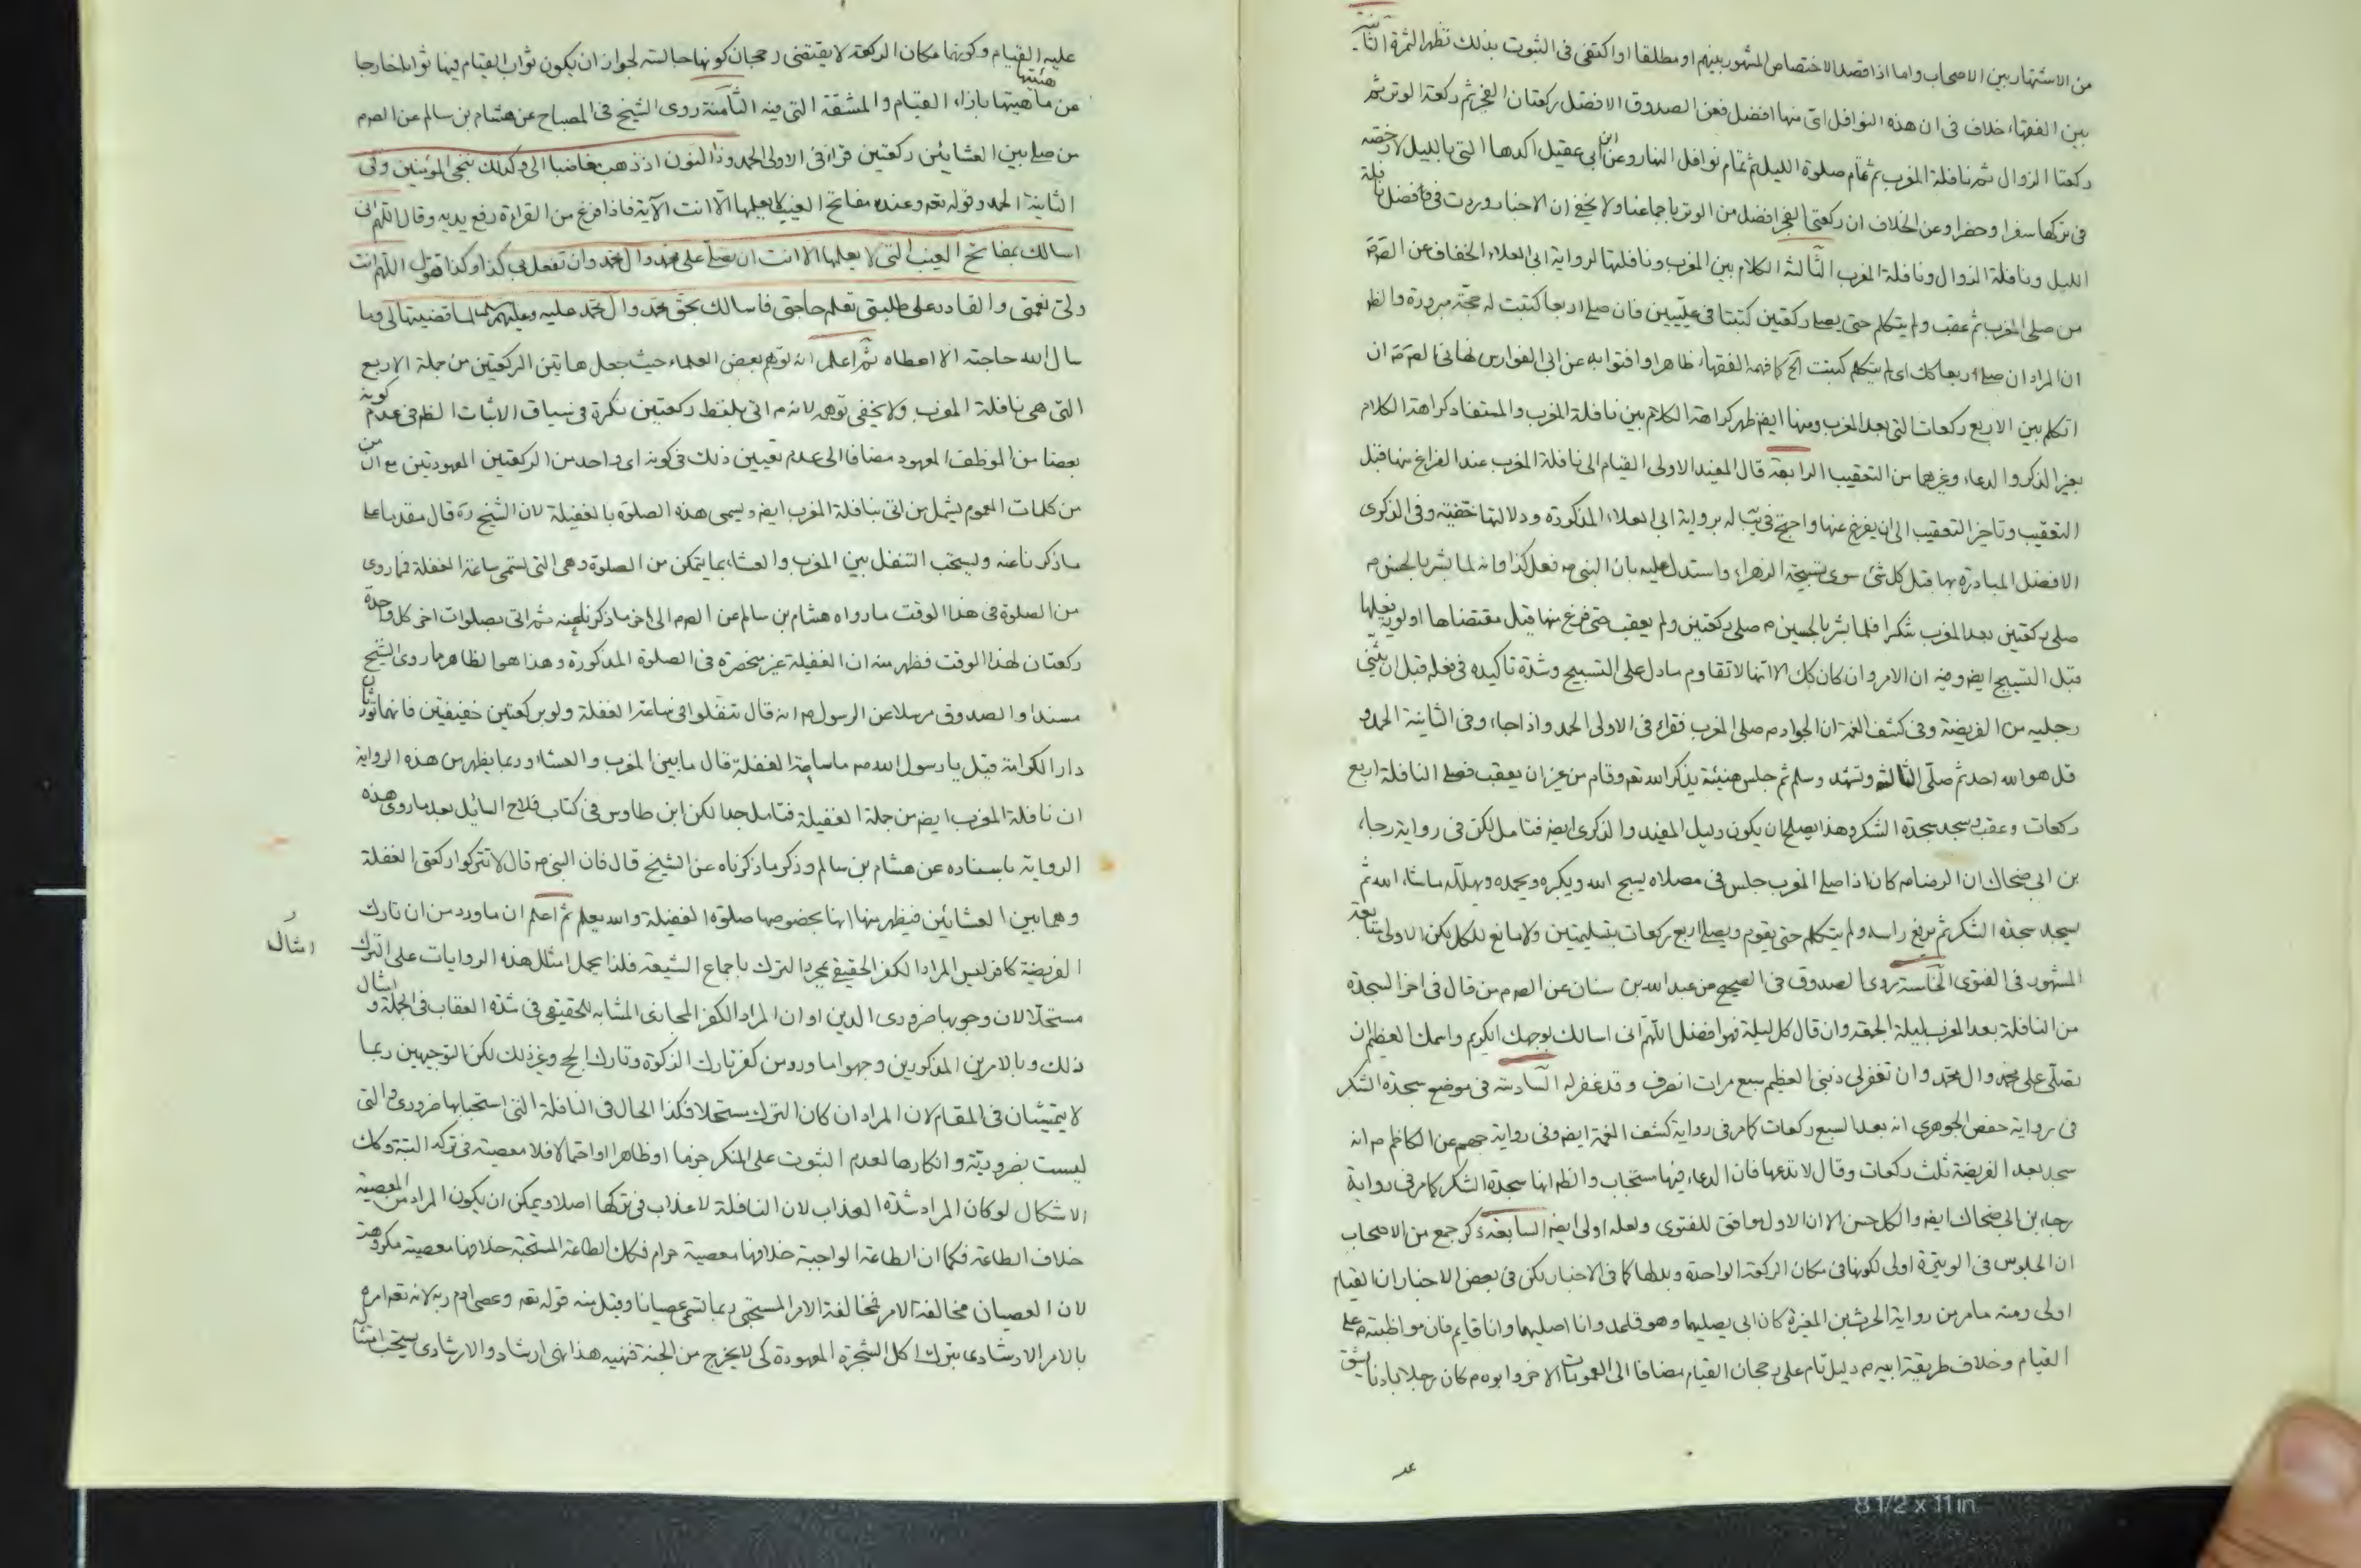 من الاشتهار بين الاصحاب واما اذا قصد الاختصاص المشهور بينهم او مطلقا او اكتفى فى الثبوت بذلك تظهر الثمرة الثانية
بين الفقهاء خلاف فى ان هذه النوافل اى منها افضل فعن الصدوق الافضل ركعتان الفجر ثم ركعة الوتر ثم
ركعتا الزوال ثم نافلة المغرب ثم تمام صلوة الليل ثم تمام نوافل النهار وعن ابن ابى عقيل اكدها التى بالليل لا رخصة
فى تركها سفرا وحضرا وعن الخلاف ان ركعتى الفجر افضل من الوتر باجماعنا ولا يخفى ان الاخبار وردت فى افضل نافلة
الليل ونافلة الزوال ونافلة المغرب الثالثة الكلام بين المغرب ونافلتها لرواية ابى العلاء الخفاف عن الص
من صلى المغرب ثم عقب ولم يتكلم حتى يصلى ركعتين كتبتا فى عليين فان صلى اربعا كتبت له حجة مبرورة والظ
ان المراد ان صلى اربعا كك اى لم يتكلم كتبت الخ كما فهمه الفقهاء ظاهرا وافتوا به عن ابى الفوارس نهانى الص ان
اتكلم بين الاربع ركعات التى بعد المغرب ومنها ايض ظهر كراهة الكلام بين نافلة المغرب والمستفاد كراهة الكلام
بغير الذكر والدعاء وغيرهما من التعقيب الرابعة قال المفيد الاولى القيام الى نافلة المغرب عند الفراغ منها قبل
التعقيب وتاخير التعقيب الى ان يفرغ عنها واحتج فى يب له برواية ابى العلاء المذكورة ودلالتها خفية وفى الذكرى
الافضل المبادرة بها قبل كل شئ سوى تسبيحة الزهراء واستدل عليه بان النبى ص فعل كذا فانه لما بشر بالحسن م
صلى ركعتين بعد المغرب شكرا فلما بشر بالحسين م صلى ركعتين ولم يعقب حتى فرغ منها قبل مقتضاها اولوية فعلها
قبل التسبيح ايض وفيه ان الامر وان كان كك الا انها لا تقاوم ما دل على التسبيح وشدة تاكيده فى فعله قبل ان يثنى
رجليه من الفريضة وفى كشف الغمة ان الجواد م صلى المغرب فقراء فى الاولى الحمد واذا جاء وفى الثانية الحمد و
قل هو الله احد ثم صلى الثالثة وتشهد وسلم ثم جلس هنيئة يذكر الله تعه وقام من غير ان يعقب فصلى النافلة اربع
ركعات وعقب وسجد سجدة الشكر وهذا يصلح ان يكون دليل المفيد والذكرى ايض فتامل لكن فى رواية رجاء
بن ابى ضحاك ان الرضا م كان اذا صلى المغرب جلس فى مصلاه يسبح الله ويكبره ويحمده ويهلله ما شاء الله ثم
يسجد سجدة الشكر ثم يرفع راسه ولم يتكلم حتى يقوم ويصلى اربع ركعات بتسليمتين ولا مانع للكل لكن الاولى متابعة
المشهور فى الفتوى الخامسة روى الصدوق فى الصحيح عن عبد الله بن سنان عن الص م من قال فى اخر السجدة
من النافلة بعد المغرب ليلة الجمعة وان قال كل ليلة فهو افضل اللهم انى اسالك بوجهك الكريم واسمك العظيم ان
تصلى على محمد وال محمد وان تغفر لى ذنبى العظيم سبع مرات انصرف وقد غفر له السادسة فى موضع سجدة الشكر
فى رواية حفص الجوهرى انه بعد السبع ركعات كما مر فى رواية كشف الغمة ايض وفى رواية جهم عن الكاظم م انه
سجد بعد الفريضة ثلث ركعات وقال لا تدعها فان الدعاء فيها مستجاب والظ انها سجدة الشكر كما مر فى رواية
رجاء بن ابى ضحاك ايض والكل حسن الا ان الاول موافق للفتوى ولعله اولى ايض السابعة ذكر جمع من الاصحاب
ان الجلوس فى الوتيرة اولى لكونها فى مكان الركعة الواحدة وبدلها كما فى الاخبار لكن فى بعض الاخبار ان القيام
اولى ومنه ما مر من رواية الحرث بن المغيرة كان ابى يصليهما وهو قاعد وانا اصليهما وانا قايم فان مواظبته م على
القيام وخلاف طريقة ابيه م دليل تام على رجحان القيام مضافا الى العمومات الاخر وابوه م كان رجلا بادنا يشق
عليه القيام وكونها مكان الركعة لا يقتضى رجحان كونها حالسة لجواز ان يكون ثواب القيام فيها ثوابا خارجا
هيئتها
عن ماهيتها بازاء القيام والمشقة التى فيه الثامنة روى الشيخ فى المصباح عن هشام بن سالم عن الص م
من صلى بين العشائين ركعتين قراء فى الاولى الحمد وذا النون اذ ذهب مغاضبا الى وكذلك ننجى المؤمنين وفى
الثانية الحمد وقوله تعه وعنده مفاتح الغيب لا يعلمها الا انت الآية فاذا فرغ من القراءة رفع يديه وقال اللهم انى
اسالك بمفاتح الغيب التى لا يعلمها الا انت ان تصلى على محمد وال محمد وان تفعل بى كذا وكذا وتقول اللهم انت
ولى نعمتى والقادر على طلبتى تعلم حاجتى فاسالك بحق محمد وال محمد عليه وعليهم لما قضيتها لى وما
سال الله حاجته الا اعطاه ثم اعلم انه توهم بعض العلماء حيث جعل هاتين الركعتين من جملة الاربع
التى هى نافلة المغرب ولا يخفى توهمه لانه م اتى بلفظ ركعتين نكرة فى سياق الاثبات الظ فى عدم كونه
بعضا من الموظف المعهود مضافا الى عدم تعيين ذلك فى كونه اى واحد من الركعتين المعهودتين مع ان من
من كلمات العموم يشمل من اتى بنافلة المغرب ايض ويسمى هذه الصلوة بالغفيلة لان الشيخ ره قال مقدما على
ما ذكرنا عنه ويستحب التنفل بين المغرب والعشاء بما يتمكن من الصلوة وهى التى تسمى ساعة الغفلة فما روى
من الصلوة فى هذا الوقت ما رواه هشام بن سالم عن الص م الى اخر ما ذكرنا عنه ثم اتى بصلوات اخر كل واحدة
ركعتان لهذا الوقت فظهر منه ان الغفيلة غير منحصرة فى الصلوة المذكورة وهذا هو الظاهر مما روى الشيخ
مسندا والصدوق مرسلا عن الرسول ص انه قال تنفلوا فى ساعة الغفلة ولو بركعتين خفيفتين فانهما تورثان
دار الكرامة قيل يا رسول الله ص ما ساعة الغفلة قال ما بين المغرب والعشاء وربما يظهر من هذه الرواية
ان نافلة المغرب ايض من جملة الغفيلة فتامل جدا لكن ابن طاوس فى كتاب فلاح السايل بعد ما روى هذه
الرواية باسناده عن هشام بن سالم وذكر ما ذكرناه عن الشيخ قال فان النبى ص قال لا تتركوا ركعتى الغفلة
وهما بين العشائين فيظهر منها انها بخصوصها صلوة الغفيلة والله يعلم ثم اعلم ان ما ورد من ان تارك
امثال
الفريضة كافر ليس المراد الكفر الحقيقى بمجرد الترك باجماع الشيعة فلذا يحمل امثال هذه الروايات على الترك
مستحلا لان وجوبها ضرورى الدين او ان المراد الكفر المجازى المشابه للحقيقى فى شدة العقاب فى الجملة و امثال
ذلك وبالامرين المذكورين وجهوا ما ورد من كفر تارك الزكوة وتارك الحج وغير ذلك لكن التوجيهين ربما
لا يتمشيان فى المقام لان المراد ان كان الترك مستحلا فكذا الحال فى النافلة التى استحبابها ضرورى والتى
ليست بضرورية وانكارها لعدم الثبوت على المنكر جزما او ظاهرا او احتمالا فلا معصية فى تركه البتة وكك
الاشكال لو كان المراد شدة العذاب لان النافلة لا عذاب فى تركها اصلا ويمكن ان يكون المراد من المعصية
خلاف الطاعة فكما ان الطاعة الواجبة خلافها معصية حرام فكك الطاعة المستحبة خلافها معصية مكروهة
لان العصيان مخالفة الامر فمخالفة الامر المستحبى ربما تسمى عصيانا وقيل منه قوله تعه وعصى ادم ربه لانه تعه امره
بالامر الارشادى بترك اكل الشجرة المعهودة كى لا يخرج من الجنة فنهيه هذا نهى ارشاد والارشادى يستحب امتثال
8 1/2 x 11 in